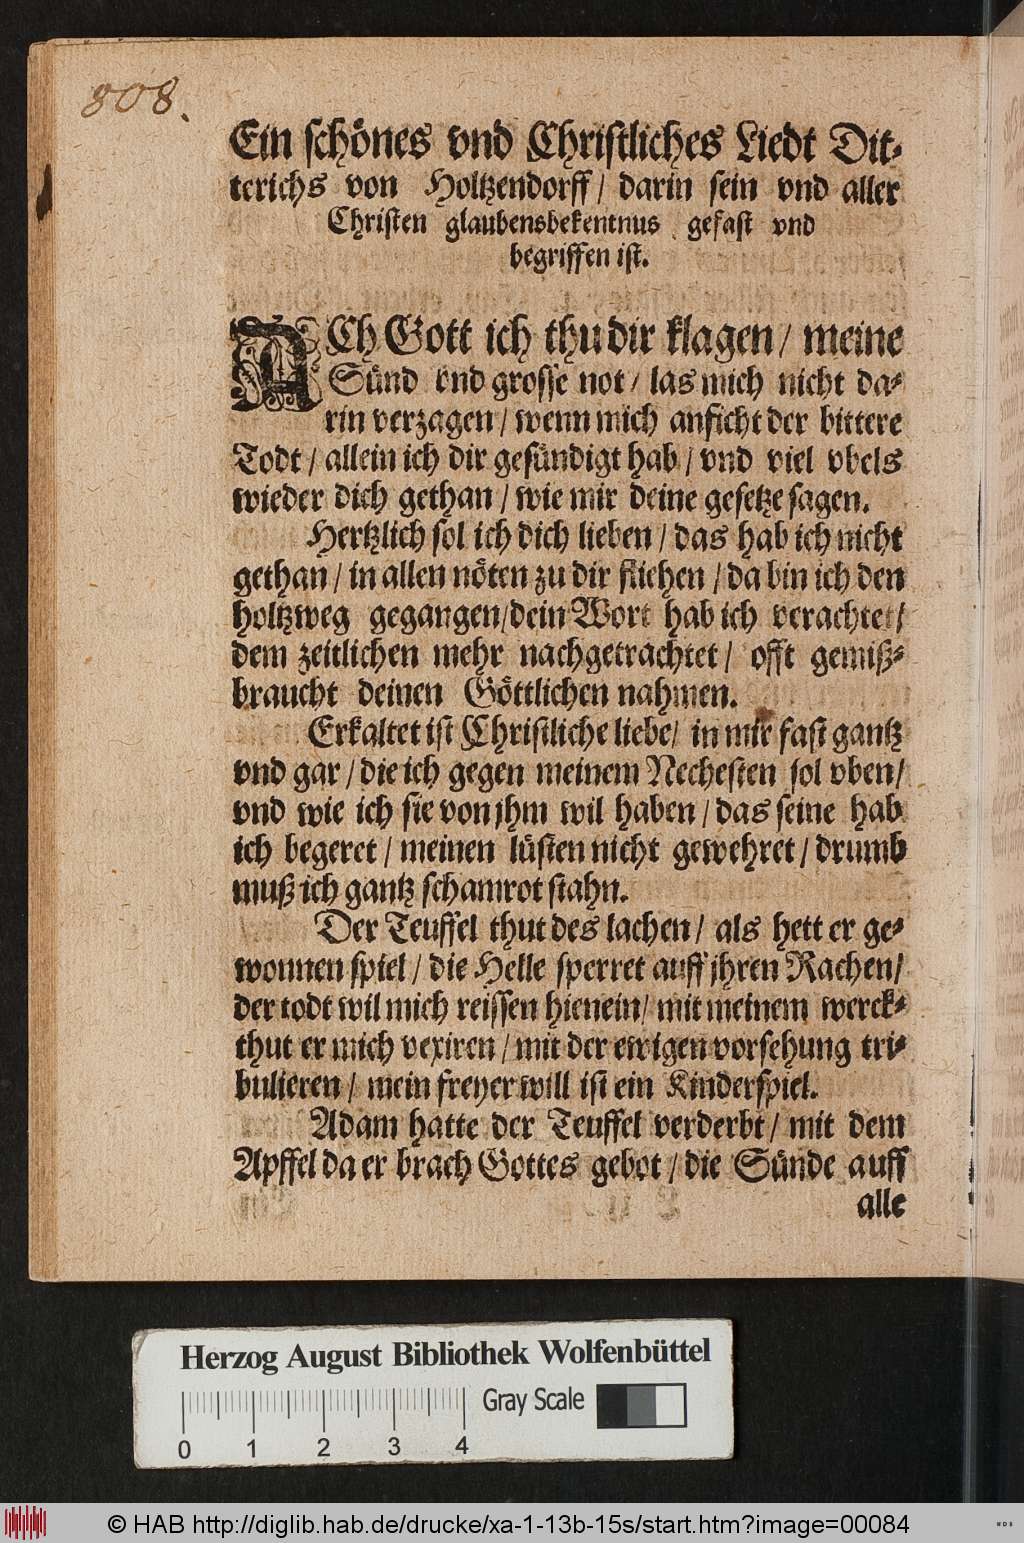 808.
Ein schönes vnd Christliches Liedt Dit-
terichs von Holtzendorff / darin sein vnd aller
Christen glaubensbekentnus gefast vnd
begriffen ist.
ACh Gott ich thu dir klagen / meine
Sünd vnd grosse not / las mich nicht da-
rin verzagen / wenn mich anficht der bittere
Todt / allein ich dir gesündigt hab / vnd viel vbels
wieder dich gethan / wie mir deine gesetze sagen.
Hertzlich sol ich dich lieben / das hab ich nicht
gethan / in allen nöten zu dir fliehen / da bin ich den
holtzweg gegangen / dein Wort hab ich verachtet /
dem zeitlichen mehr nachgetrachtet / offt gemiß-
braucht deinen Göttlichen nahmen.
Erkaltet ist Christliche liebe / in mir fast gantz
vnd gar / die ich gegen meinem Nechesten sol vben /
vnd wie ich sie von jhm wil haben / das seine hab
ich begeret / meinen lüsten nicht gewehret / drumb
muß ich gantz schamrot stahn.
Der Teuffel thut des lachen / als hett er ge-
wonnen spiel / die Helle sperret auff jhren Rachen /
der todt wil mich reissen hienein / mit meinem werck-
thut er mich vexiren / mit der ewigen vorsehung tri-
bulieren / mein freyer will ist ein Kinderspiel.
Adam hatte der Teuffel verderbt / mit dem
Apffel da er brach Gottes gebot / die Sünde auff
alle
Herzog August Bibliothek Wolfenbüttel
Gray Scale
0 1 2 3 4
© HAB http://diglib.hab.de/drucke/xa-1-13b-15s/start.htm?image=00084
WDB